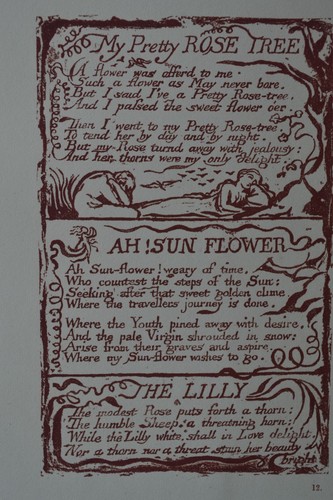 My Pretty ROSE TREE
A flower was offerd to me:
Such a flower as May never bore.
But I said I've a Pretty Rose-tree,
And I passed the sweet flower o'er.
Then I went to my Pretty Rose-tree:
To tend her by day and by night.
But my Rose turnd away with jealousy:
And her thorns were my only delight.
AH! SUN FLOWER
Ah Sun-flower! weary of time,
Who countest the steps of the Sun:
Seeking after that sweet golden clime
Where the travellers journey is done.
Where the Youth pined away with desire,
And the pale Virgin shrouded in snow:
Arise from their graves and aspire,
Where my Sun-flower wishes to go.
THE LILLY
The modest Rose puts forth a thorn:
The humble Sheep, a threatning horn:
While the Lilly white, shall in Love delight,
Nor a thorn nor a threat stain her beauty
bright
12.